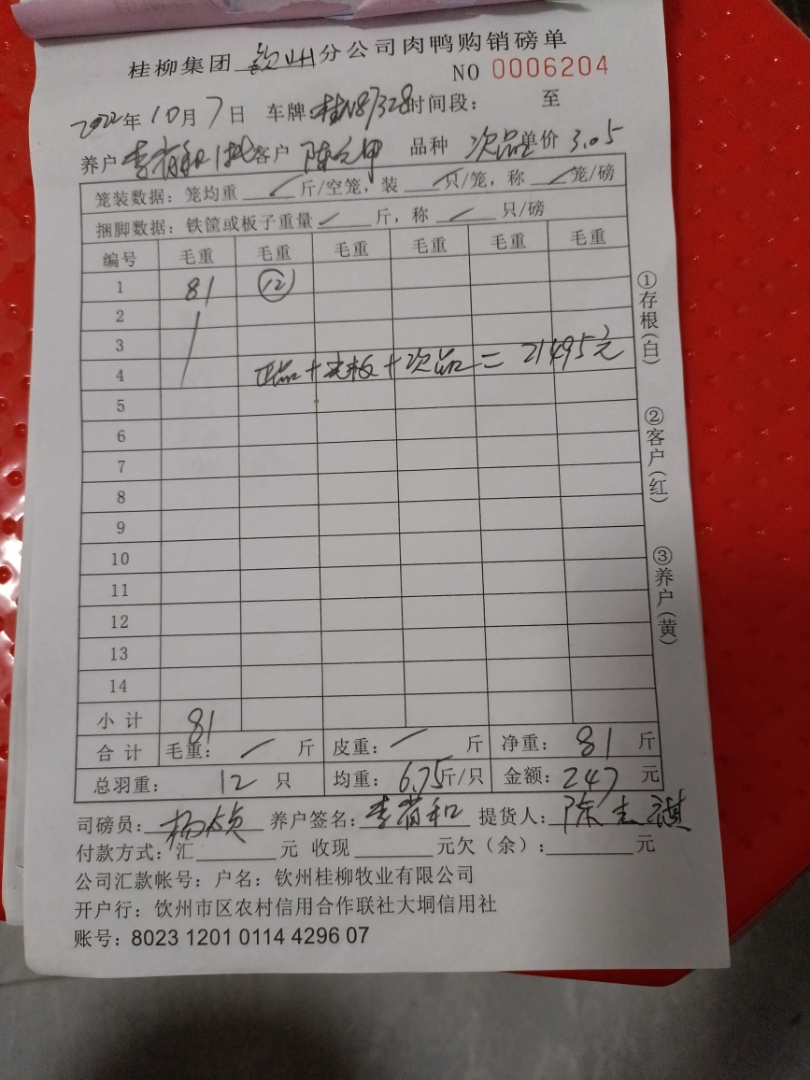 桂柳集团 钦州 分公司肉鸭购销磅单
NO 0006204
2022年10月7日 车牌 桂N87328 时间段： 至
养户 李 和 客户 陈 品种 次品 单价 3.05
笼装数据：笼均重 / 斤/空笼，装 / 只/笼，称 / 笼/磅
捆脚数据：铁筐或板子重量 / 斤，称 / 只/磅
编号 毛重 毛重 毛重 毛重 毛重
1 81 ⑫
2
3
4 正品 + 板 + 次品 = 21495元
5
6
7
8
9
10
11
12
13
14
小计 81
合计 毛重： / 斤 皮重： / 斤 净重： 81 斤
总羽重： 12 只 均重： 6.75 斤/只 金额： 247 元
司磅员： 杨 养户签名： 李 和 提货人： 陈
付款方式：汇 元 收现 元欠（余）： 元
公司汇款帐号：户名：钦州桂柳牧业有限公司
开户行：钦州市区农村信用合作联社大垌信用社
账号：8023 1201 0114 4296 07
①存根（白）
②客户（红）
③养户（黄）